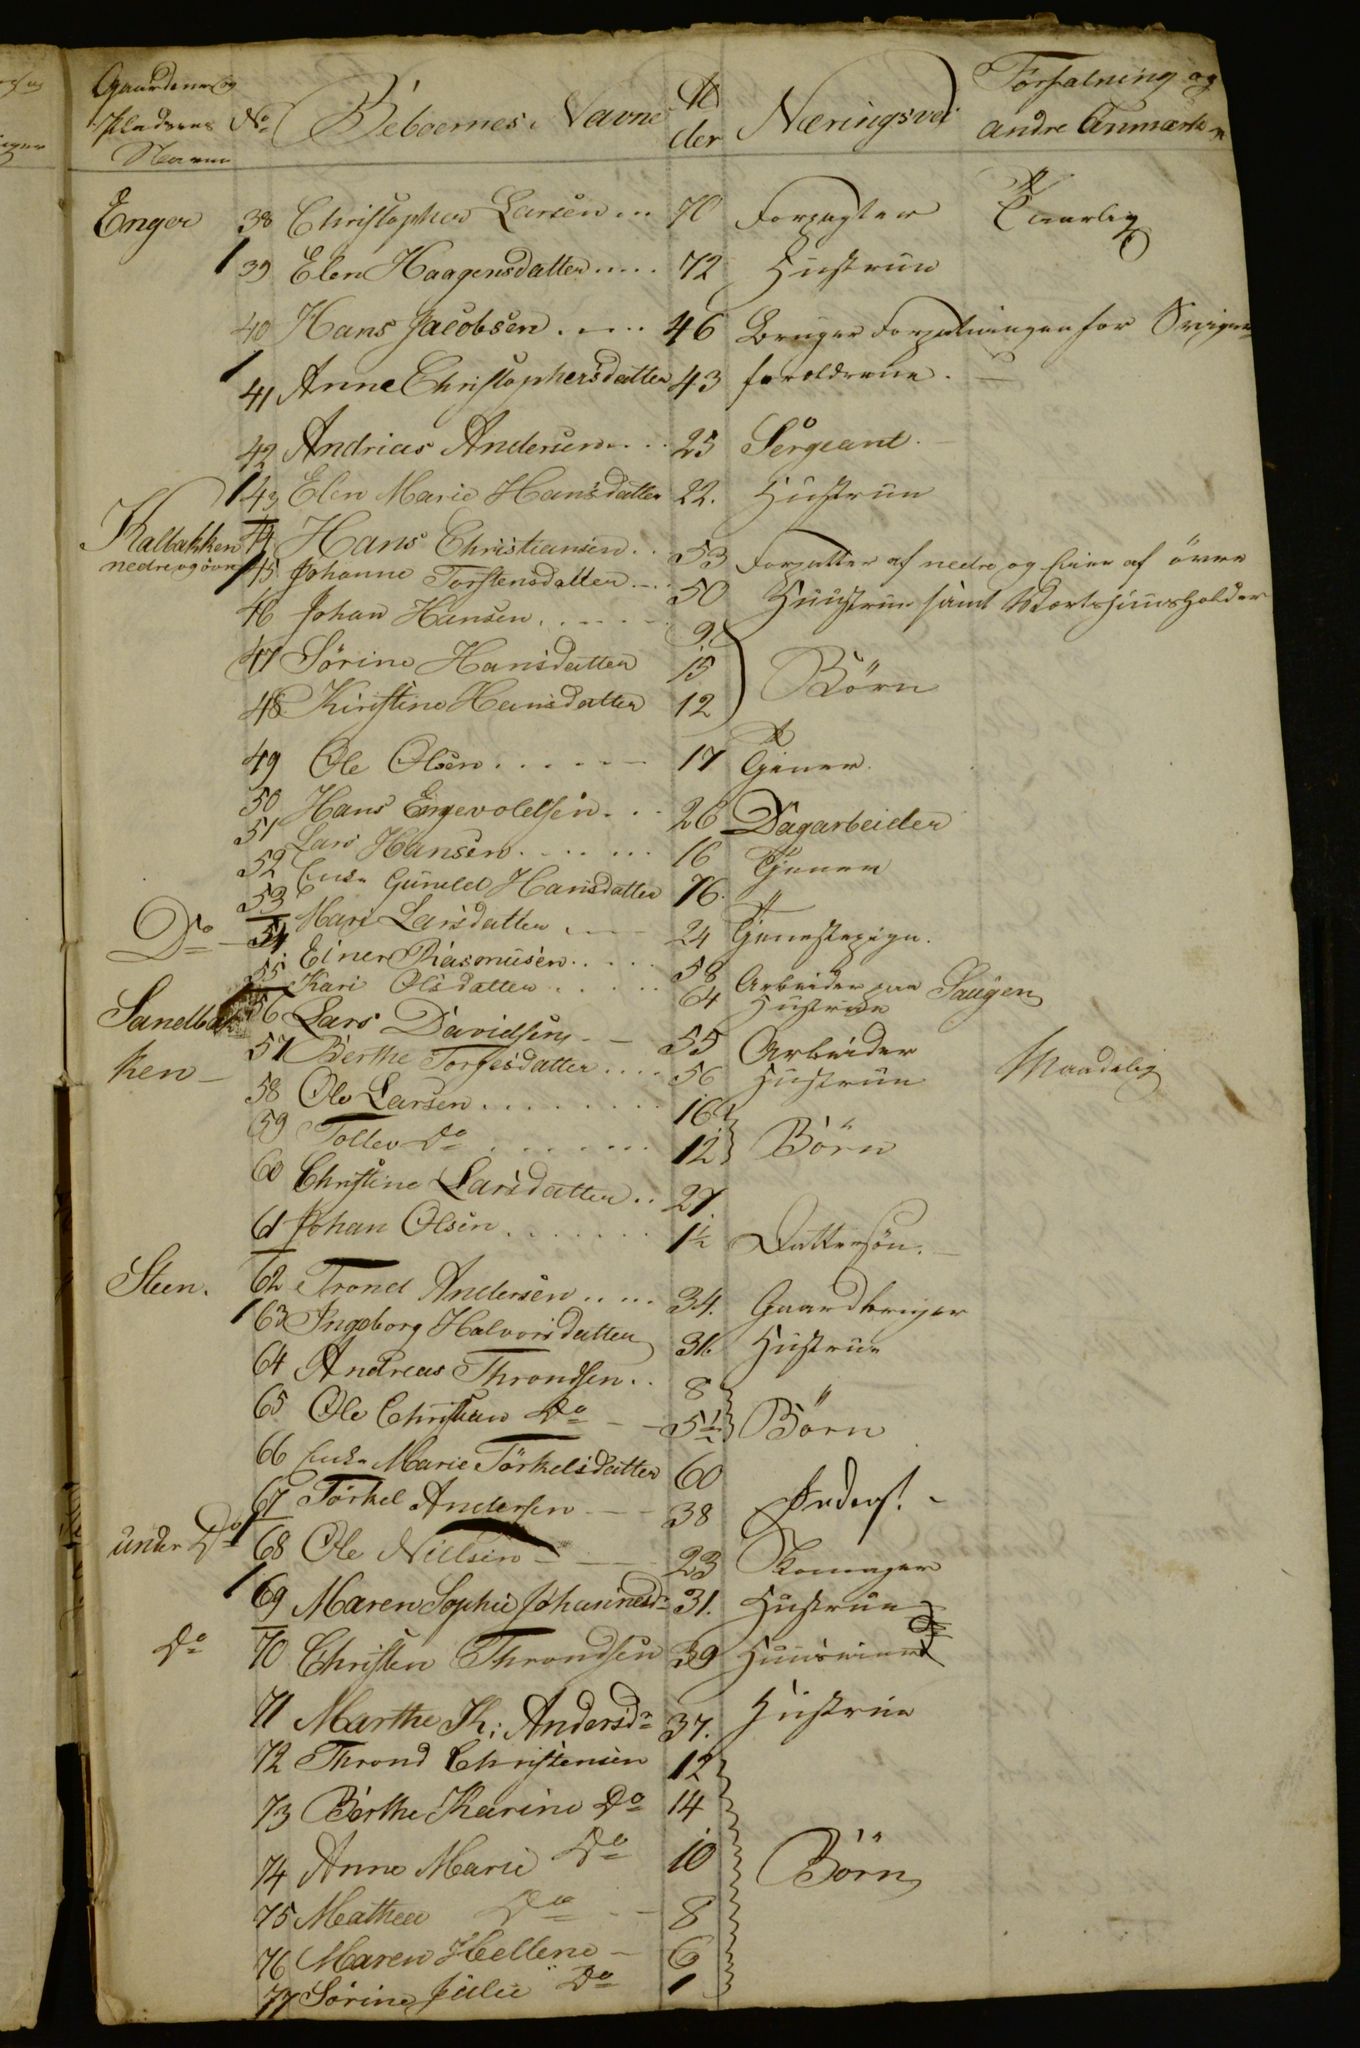 Gaardenes og Pladsenes Navne No Beboernes Navne Alder Næringsvei Forfatning og andre Anmærk
Enger 38 Christopher Larsen ... 70 Forpagter Skrøbelig
39 Elen Haagensdatter ..... 72 Hustrue
40 Hans Jacobsen ..... 46 Bruger Forpagtningen for Sviger=
41 Anne Christophersdatter 43 foreldrene. —
42 Andrias Andersen .... 25 Sergeant. —
43 Elen Marie Hansdatter 22. Hustrue
Kalbakken 44 Hans Christiansen .. 53 Forpatter af nedre og Eier af övre
nedre og övre 45 Johanne Torstensdatter ... 50 Huustrue samt Vertshuusholder
46 Johan Hansen ..... 9
47 Sörine Hansdatter 15 Börn
48 Kirstine Hansdatter 12
49 Ole Olsen ..... 17 Tjener.
50 Hans Engevoldsen ... 26 Dagarbeider
51 Lars Hansen ...... 16 Tjener
52 Enke Guneld Hansdatter 76. "
53 Mari Larsdatter .... 24 Tjenestepige.
Do — 54 Einer Rasmusen ..... 58 Arbeider paa Saugen
55 Kari Olsdatter ..... 64 Hustrue
Sandbak 56 Lars Davidsen — — 55 Arbeider
ken — 57 Berthe Torgesdatter .... 56 Hustrue Maadelig
58 Ole Larsen ........ 16
59 Tollev Do ...... 12 Börn
60 Christine Larsdatter .. 27.
61 Johan Olsen ....... 1½ Dattersön. —
Steen. 62 Trond Andersen ..... 34. Gaardbruger
63 Ingeborg Halvorsdatter 31. Hustrue
64 Andreas Throndsen .. 8
65 Ole Christian Do — — 5½ Börn
66 Enke Marie Törkelsdatter 60
67 Törkel Andersen — — 38 Inderst. —
under Do 68 Ole Nielsen — — — 23 Skomager
69 Maren Sophie Johannesdr 31. Hustrue
Do 70 Christen Throndsen 39 Huusmand
71 Marthe K: Andersdr 37. Hustrue
72 Thrond Christensen 12
73 Berthe Karine Do 14
74 Anne Marie Do 10 Börn
75 Mathea Do — — 8
76 Maren Hellene — 6
77 Sörine Julie Do 1